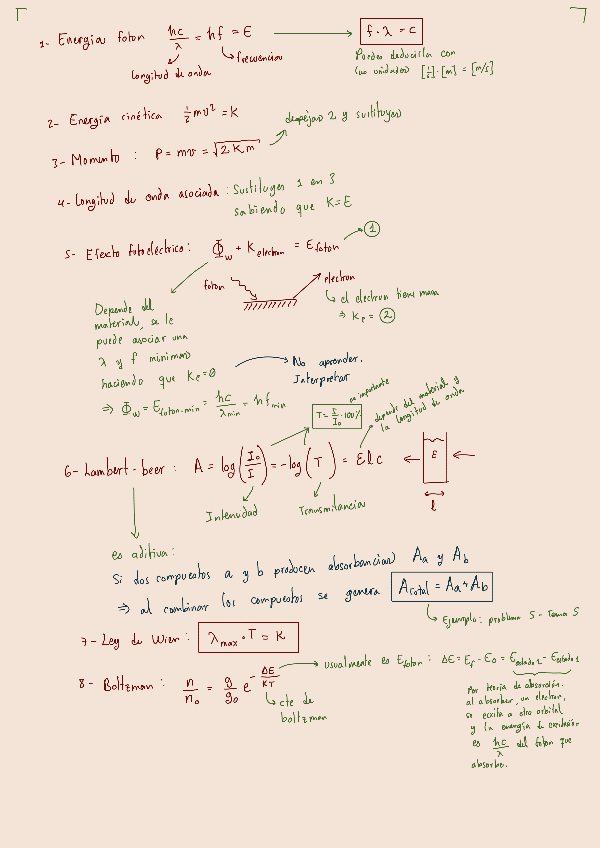 1- Energía foton hc/λ = hf = E → f · λ = c
longitud de onda
frecuencia
Puedes deducirla con
las unidades [1/s]·[m] = [m/s]
2- Energía cinética ½mv² = K
despejas 2 y sustituyes
3- Momento : P = mv = √2Km
4- Longitud de onda asociada : Sustituyes 1 en 3
sabiendo que K=E
5- Efecto fotoeléctrico: Φw + Kelectron = Efoton 1
foton
electron
el electron tiene masa
⇒ Ke = 2
Depende del
material, se le
puede asociar una
λ y f minimas
haciendo que Ke=0
No aprender.
Interpretar
⇒ Φw = Efoton-min = hc/λmin = hfmin
es importante
T = I/I₀ · 100%
depende del material y
la longitud de onda
6- Lambert-beer : A = log(I₀/I) = -log(T) = Elc
E
l
Intensidad
Transmitancia
es aditiva:
Si dos compuestos a y b producen absorbancias Aa y Ab
⇒ al combinar los compuestos se genera Atotal = Aa + Ab
Ejemplo: problema 5 - Tema 5
7- Ley de Wien : λmax · T = K
8- Boltzman : n/n₀ = g/g₀ e^-ΔE/KT
usualmente es Efoton : ΔE = Ef - E₀ = Eestado 2 - Eestado 1
cte de
boltzman
Por teoría de absorción.
al absorber, un electron,
se excita a otro orbital
y la energía de excitación
es hc/λ del foton que
absorbe.